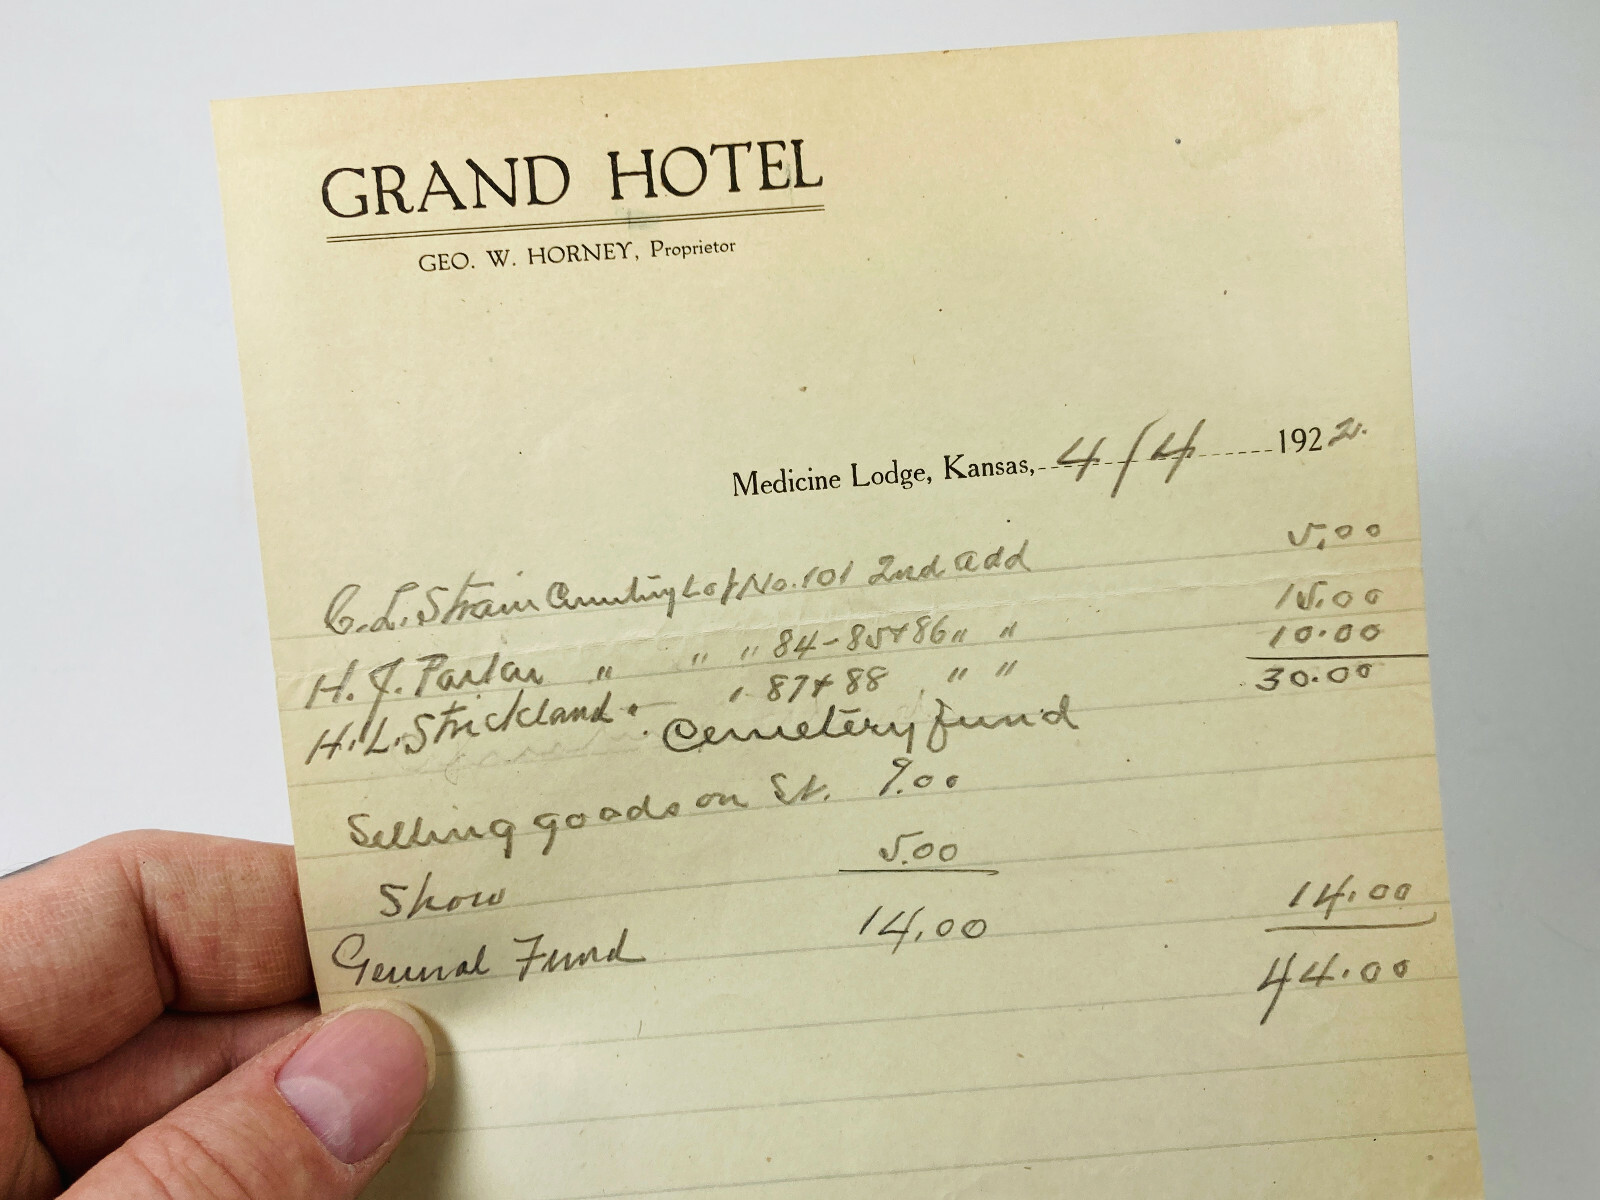 GRAND HOTEL
GEO. W. HORNEY, Proprietor
Medicine Lodge, Kansas, 4/4 1922.
C. L. Strain Lot No. 101 2nd add 5.00
H. J. " " " 84-85+86 " " 15.00
H. L. Strickland " " 87+88 " " 10.00
30.00
Cemetery fund
Selling goods on St. 9.00
Show 5.00
General Fund 14.00 14.00
44.00